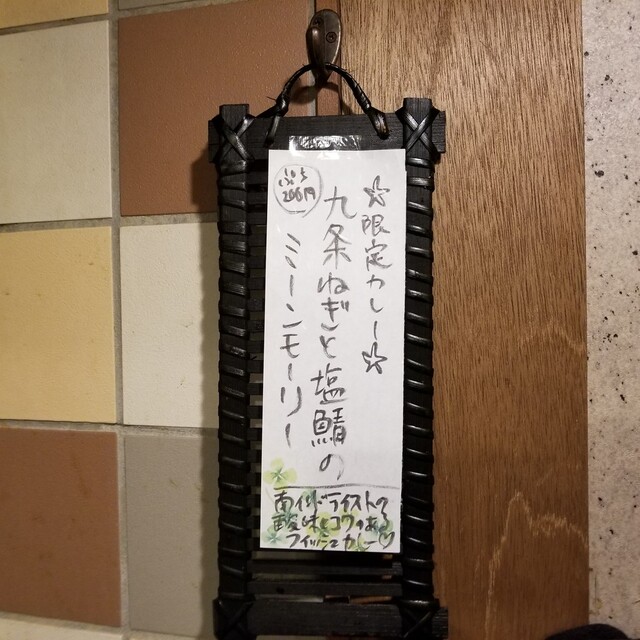 ☆限定カレー☆
九条ねぎと塩鯖の
ミーンモーリー
ぷち
200円
南インドテイストの
酸味とコクのある
フィッシュカレー♡